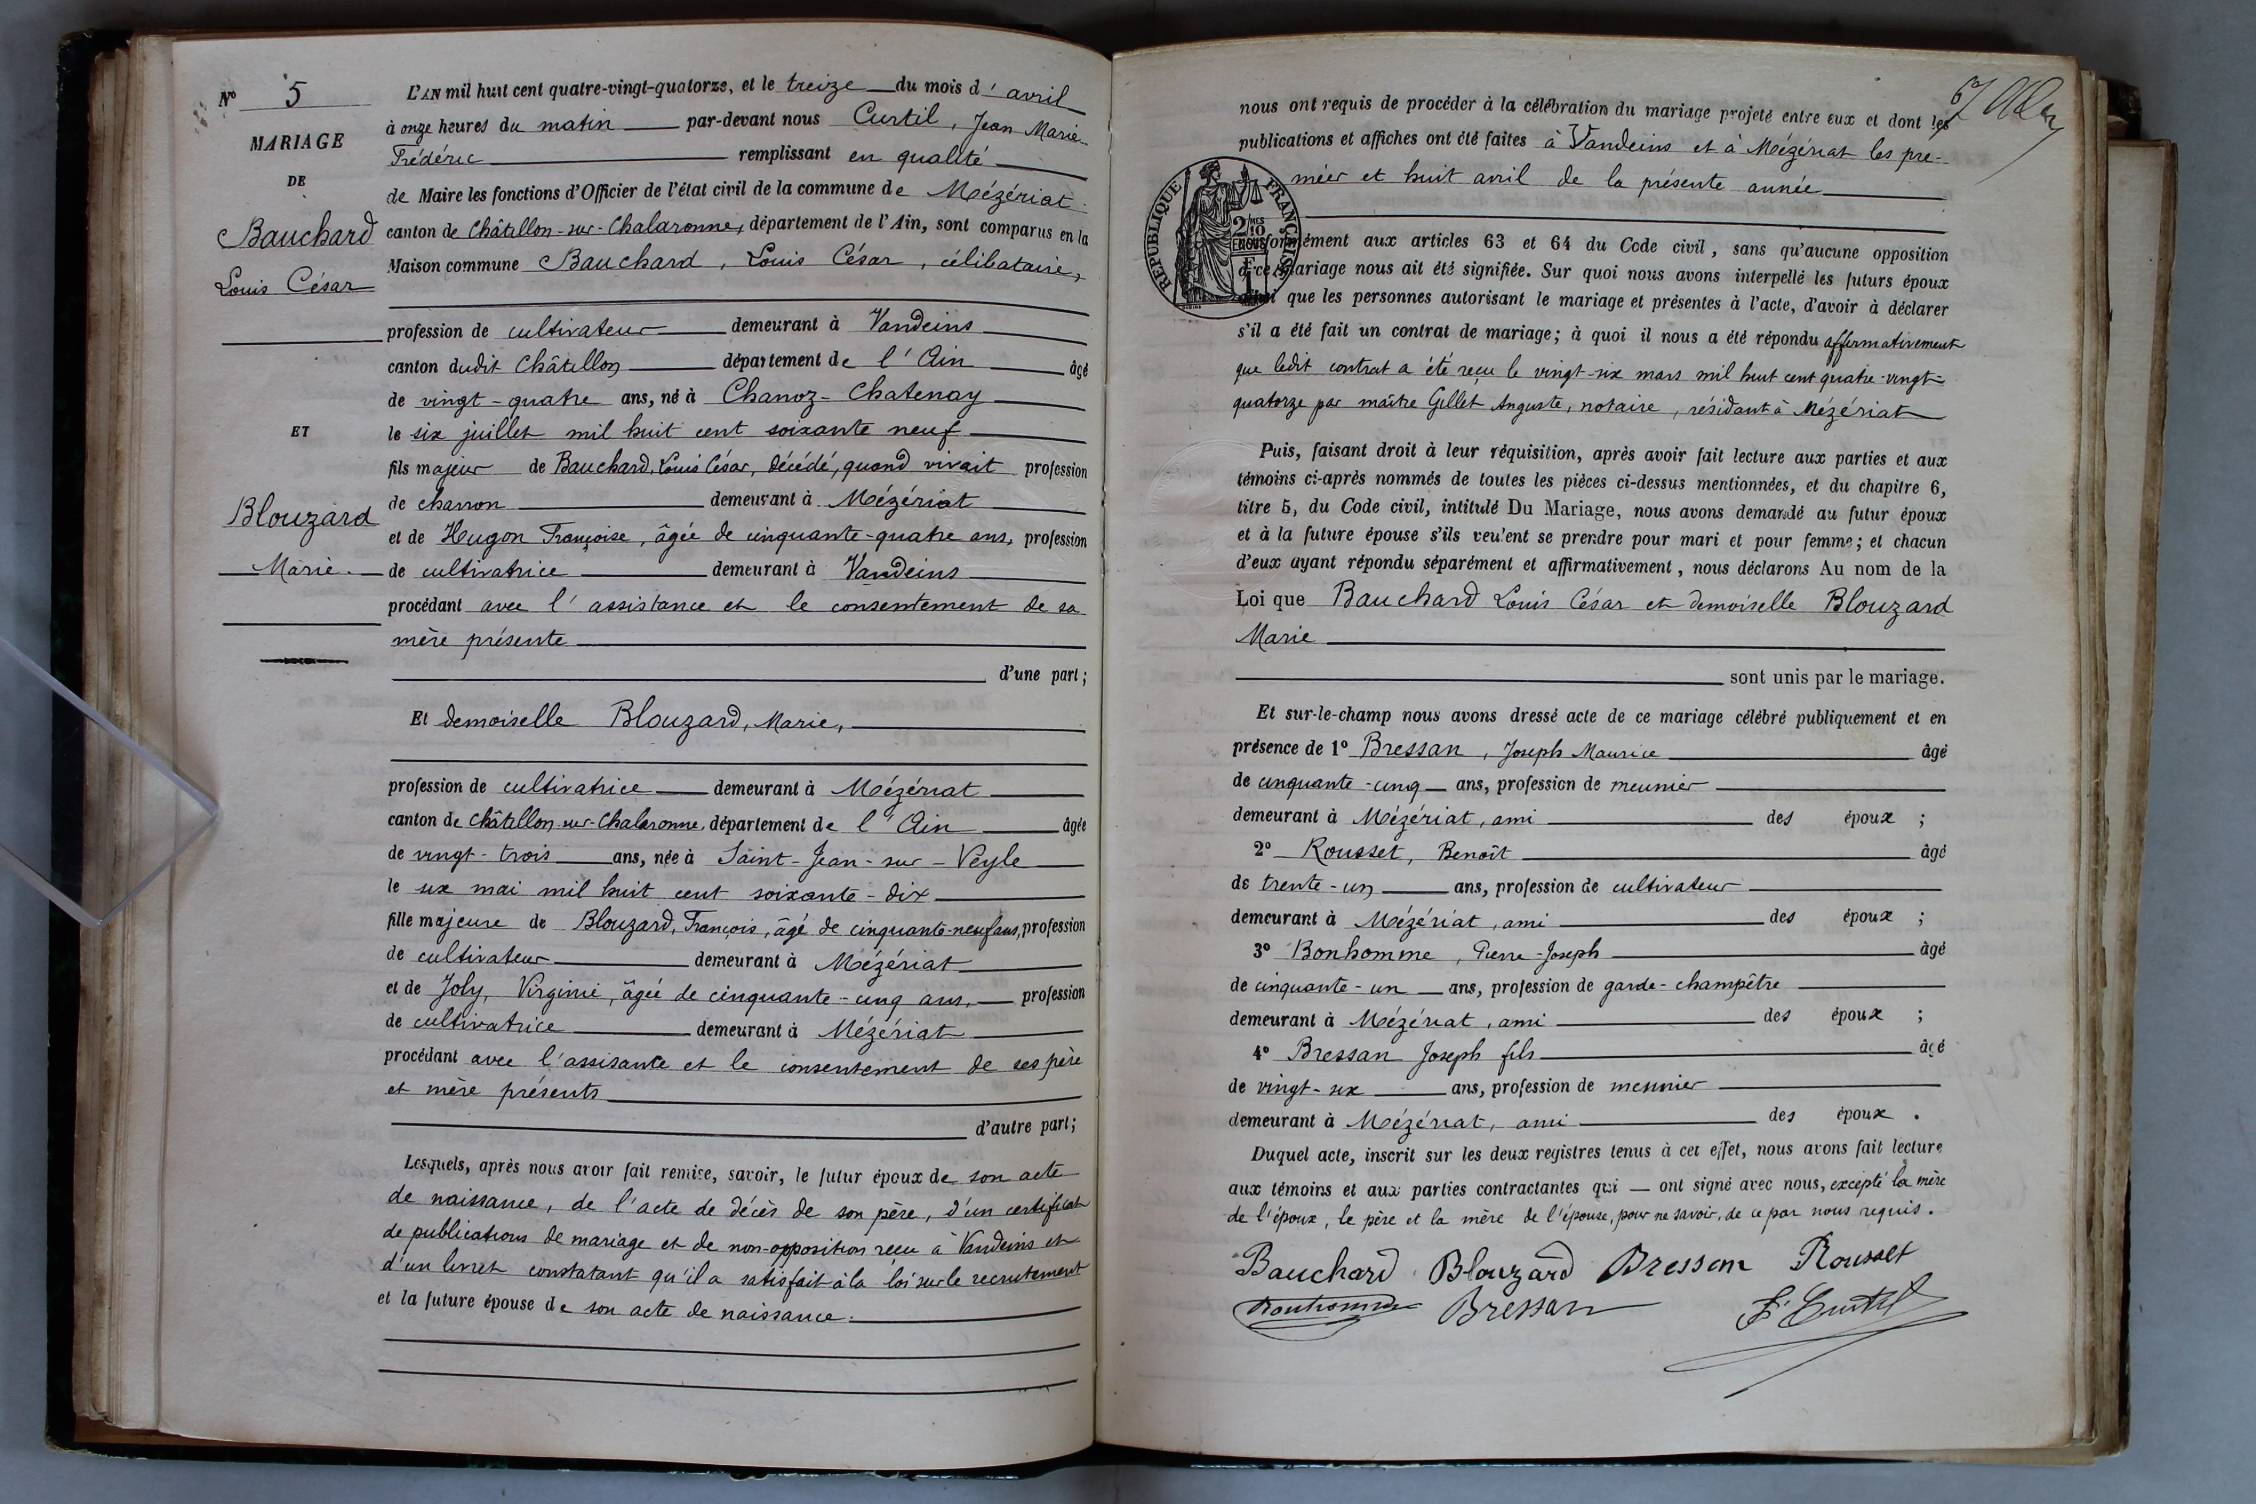 N° 5
MARIAGE
DE
Bauchard
Louis César
ET
Blouzard
Marie.
L'AN mil huit cent quatre-vingt-quatorze, et le treize du mois d'avril
à onze heures du matin par-devant nous Curtil, Jean Marie
Frédéric remplissant en qualité
de Maire les fonctions d'Officier de l'état civil de la commune de Mézériat
canton de Châtillon-sur-Chalaronne, département de l'Ain, sont comparus en la
Maison commune Bauchard, Louis César, célibataire,
profession de cultivateur demeurant à Vandeins
canton dudit Châtillon département de l'Ain âgé
de vingt-quatre ans, né à Chanoz-Chatenay
le six juillet mil huit cent soixante neuf
fils majeur de Bauchard, Louis César, décédé, quand vivait profession
de charron demeurant à Mézériat
et de Hugon Françoise, âgée de cinquante-quatre ans, profession
de cultivatrice demeurant à Vandeins
procédant avec l'assistance et le consentement de sa
mère présente
d'une part;
Et demoiselle Blouzard, Marie,
profession de cultivatrice demeurant à Mézériat
canton de Châtillon-sur-Chalaronne, département de l'Ain âgée
de vingt-trois ans, née à Saint-Jean-sur-Veyle
le six mai mil huit cent soixante-dix
fille majeure de Blouzard, François, âgé de cinquante-neuf ans, profession
de cultivateur demeurant à Mézériat
et de Joly, Virginie, âgée de cinquante-cinq ans, profession
de cultivatrice demeurant à Mézériat
procédant avec l'assisante et le consentement de ses père
et mère présents
d'autre part;
Lesquels, après nous avoir fait remise, savoir, le futur époux de son acte
de naissance, de l'acte de décès de son père, d'un certificat
de publications de mariage et de non-opposition reçu à Vandeins et
d'un livret constatant qu'il a satisfait à la loi sur le recrutement
et la future épouse de son acte de naissance.
nous ont requis de procéder à la célébration du mariage projeté entre eux et dont les
publications et affiches ont été faites à Vandeins et à Mézériat les pre-
mier et huit avril de la présente année
RÉPUBLIQUE FRANÇAISE
2/MES 10 EN SUS
1 F
conformément aux articles 63 et 64 du Code civil, sans qu'aucune opposition
à ce mariage nous ait été signifiée. Sur quoi nous avons interpellé les futurs époux
ainsi que les personnes autorisant le mariage et présentes à l'acte, d'avoir à déclarer
s'il a été fait un contrat de mariage; à quoi il nous a été répondu affirmativement
que ledit contrat a été reçu le vingt-six mars mil huit cent quatre-vingt-
quatorze par maître Gillet Auguste, notaire, résidant à Mézériat
Puis, faisant droit à leur réquisition, après avoir fait lecture aux parties et aux
témoins ci-après nommés de toutes les pièces ci-dessus mentionnées, et du chapitre 6,
titre 5, du Code civil, intitulé Du Mariage, nous avons demandé au futur époux
et à la future épouse s'ils veulent se prendre pour mari et pour femme; et chacun
d'eux ayant répondu séparément et affirmativement, nous déclarons Au nom de la
Loi que Bauchard Louis César et demoiselle Blouzard
Marie
sont unis par le mariage.
Et sur-le-champ nous avons dressé acte de ce mariage célébré publiquement et en
présence de 1° Bressan, Joseph Maurice âgé
de cinquante-cinq ans, profession de meunier
demeurant à Mézériat, ami des époux ;
2° Rousset, Benoît âgé
de trente-un ans, profession de cultivateur
demeurant à Mézériat, ami des époux ;
3° Bonhomme, Pierre-Joseph âgé
de cinquante-un ans, profession de garde-champêtre
demeurant à Mézériat, ami des époux ;
4° Bressan Joseph fils âgé
de vingt-six ans, profession de meunier
demeurant à Mézériat, ami des époux .
Duquel acte, inscrit sur les deux registres tenus à cet effet, nous avons fait lecture
aux témoins et aux parties contractantes qui — ont signé avec nous, excepté la mère
de l'époux, le père et la mère de l'épouse, pour ne savoir, de ce par nous requis.
Bauchard Blouzard Bressan Rousset
Bonhomme Bressan F. Curtil